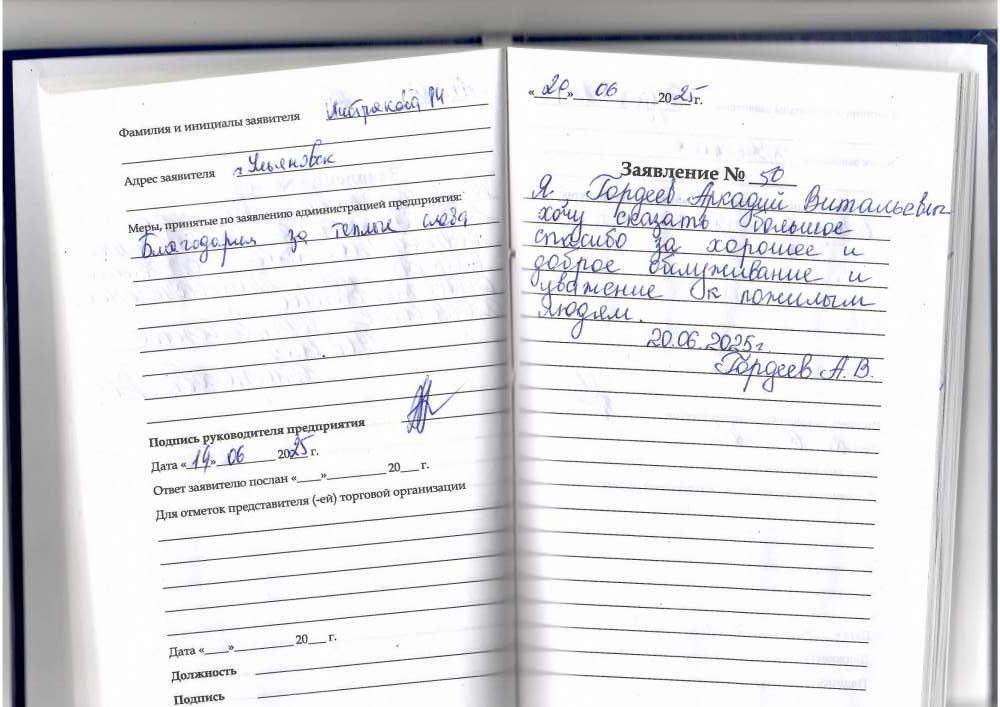 Фамилия и инициалы заявителя
Адрес заявителя г. Ульяновск
Меры, принятые по заявлению администрацией предприятия:
Благодарим за теплые слова
Подпись руководителя предприятия
Дата «19» 06 2025 г.
Ответ заявителю послан «___» ________ 20___ г.
Для отметок представителя (-ей) торговой организации
Дата «___» ________ 20___ г.
Должность
Подпись
«20» 06 2025 г.
Заявление № 50
Я, Гордеев Аркадий Витальевич
хочу сказать большое
спасибо за хорошее и
доброе обслуживание и
уважение к пожилым
людям.
20.06.2025г.
Гордеев А.В.